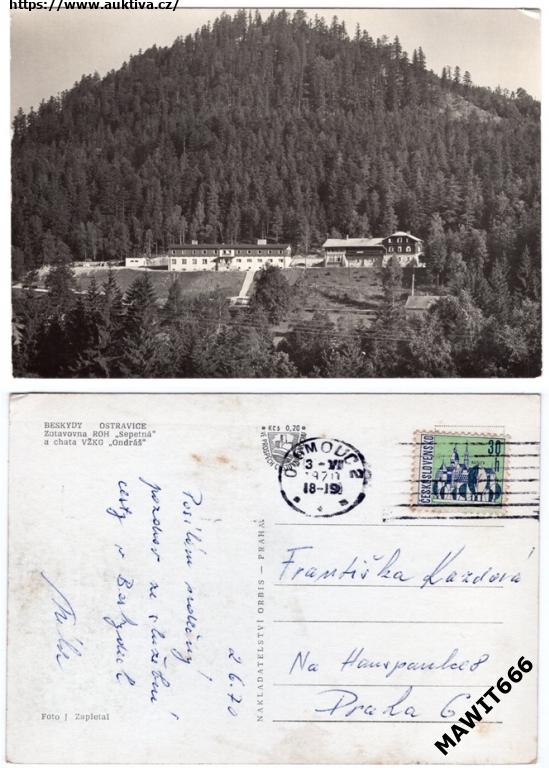 https://www.auktiva.cz/
BESKYDY OSTRAVICE
Zotavovna ROH „Sepetná"
a chata VŽKG „Ondráš"
Kčs 0,20
OLOMOUC 2
3 -VI
1970
18-19
ČESKOSLOVENSKO
30
h
Posílám srdečný
pozdrav ze služební
cesty v Beskydech
2.6.70
NAKLADATELSTVÍ ORBIS — PRAHA
Františka Kazdová
Na Hanspaulce 8
Praha 6
Foto J Zapletal
MAWIT666